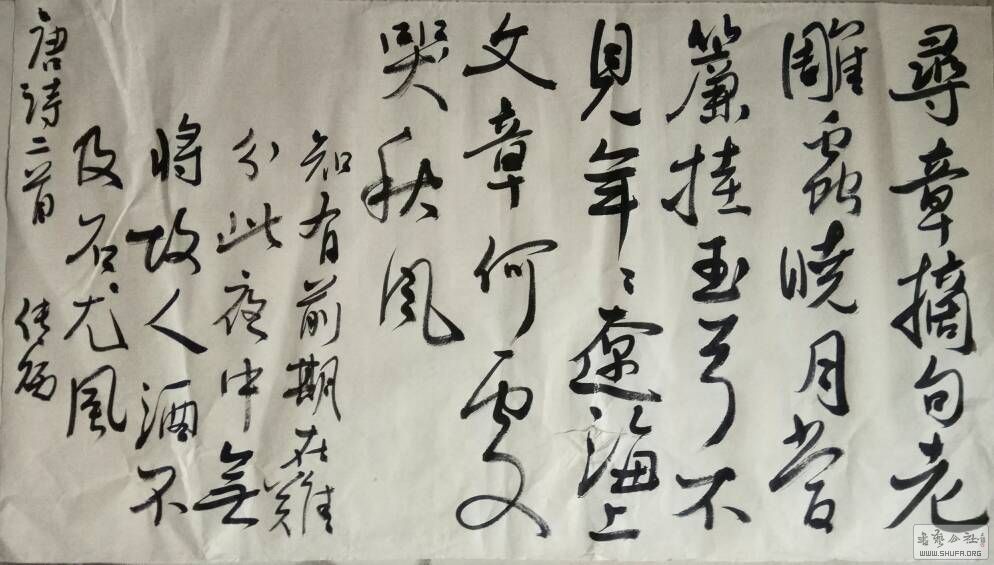 尋章摘句老
雕蟲曉月當
簾挂玉弓不
見年〻遼海上
文章何處
哭秋風
知有前期在難
分此夜中無
將故人酒不
及石尤風
唐詩二首
书艺公社
WWW.SHUFA.ORG